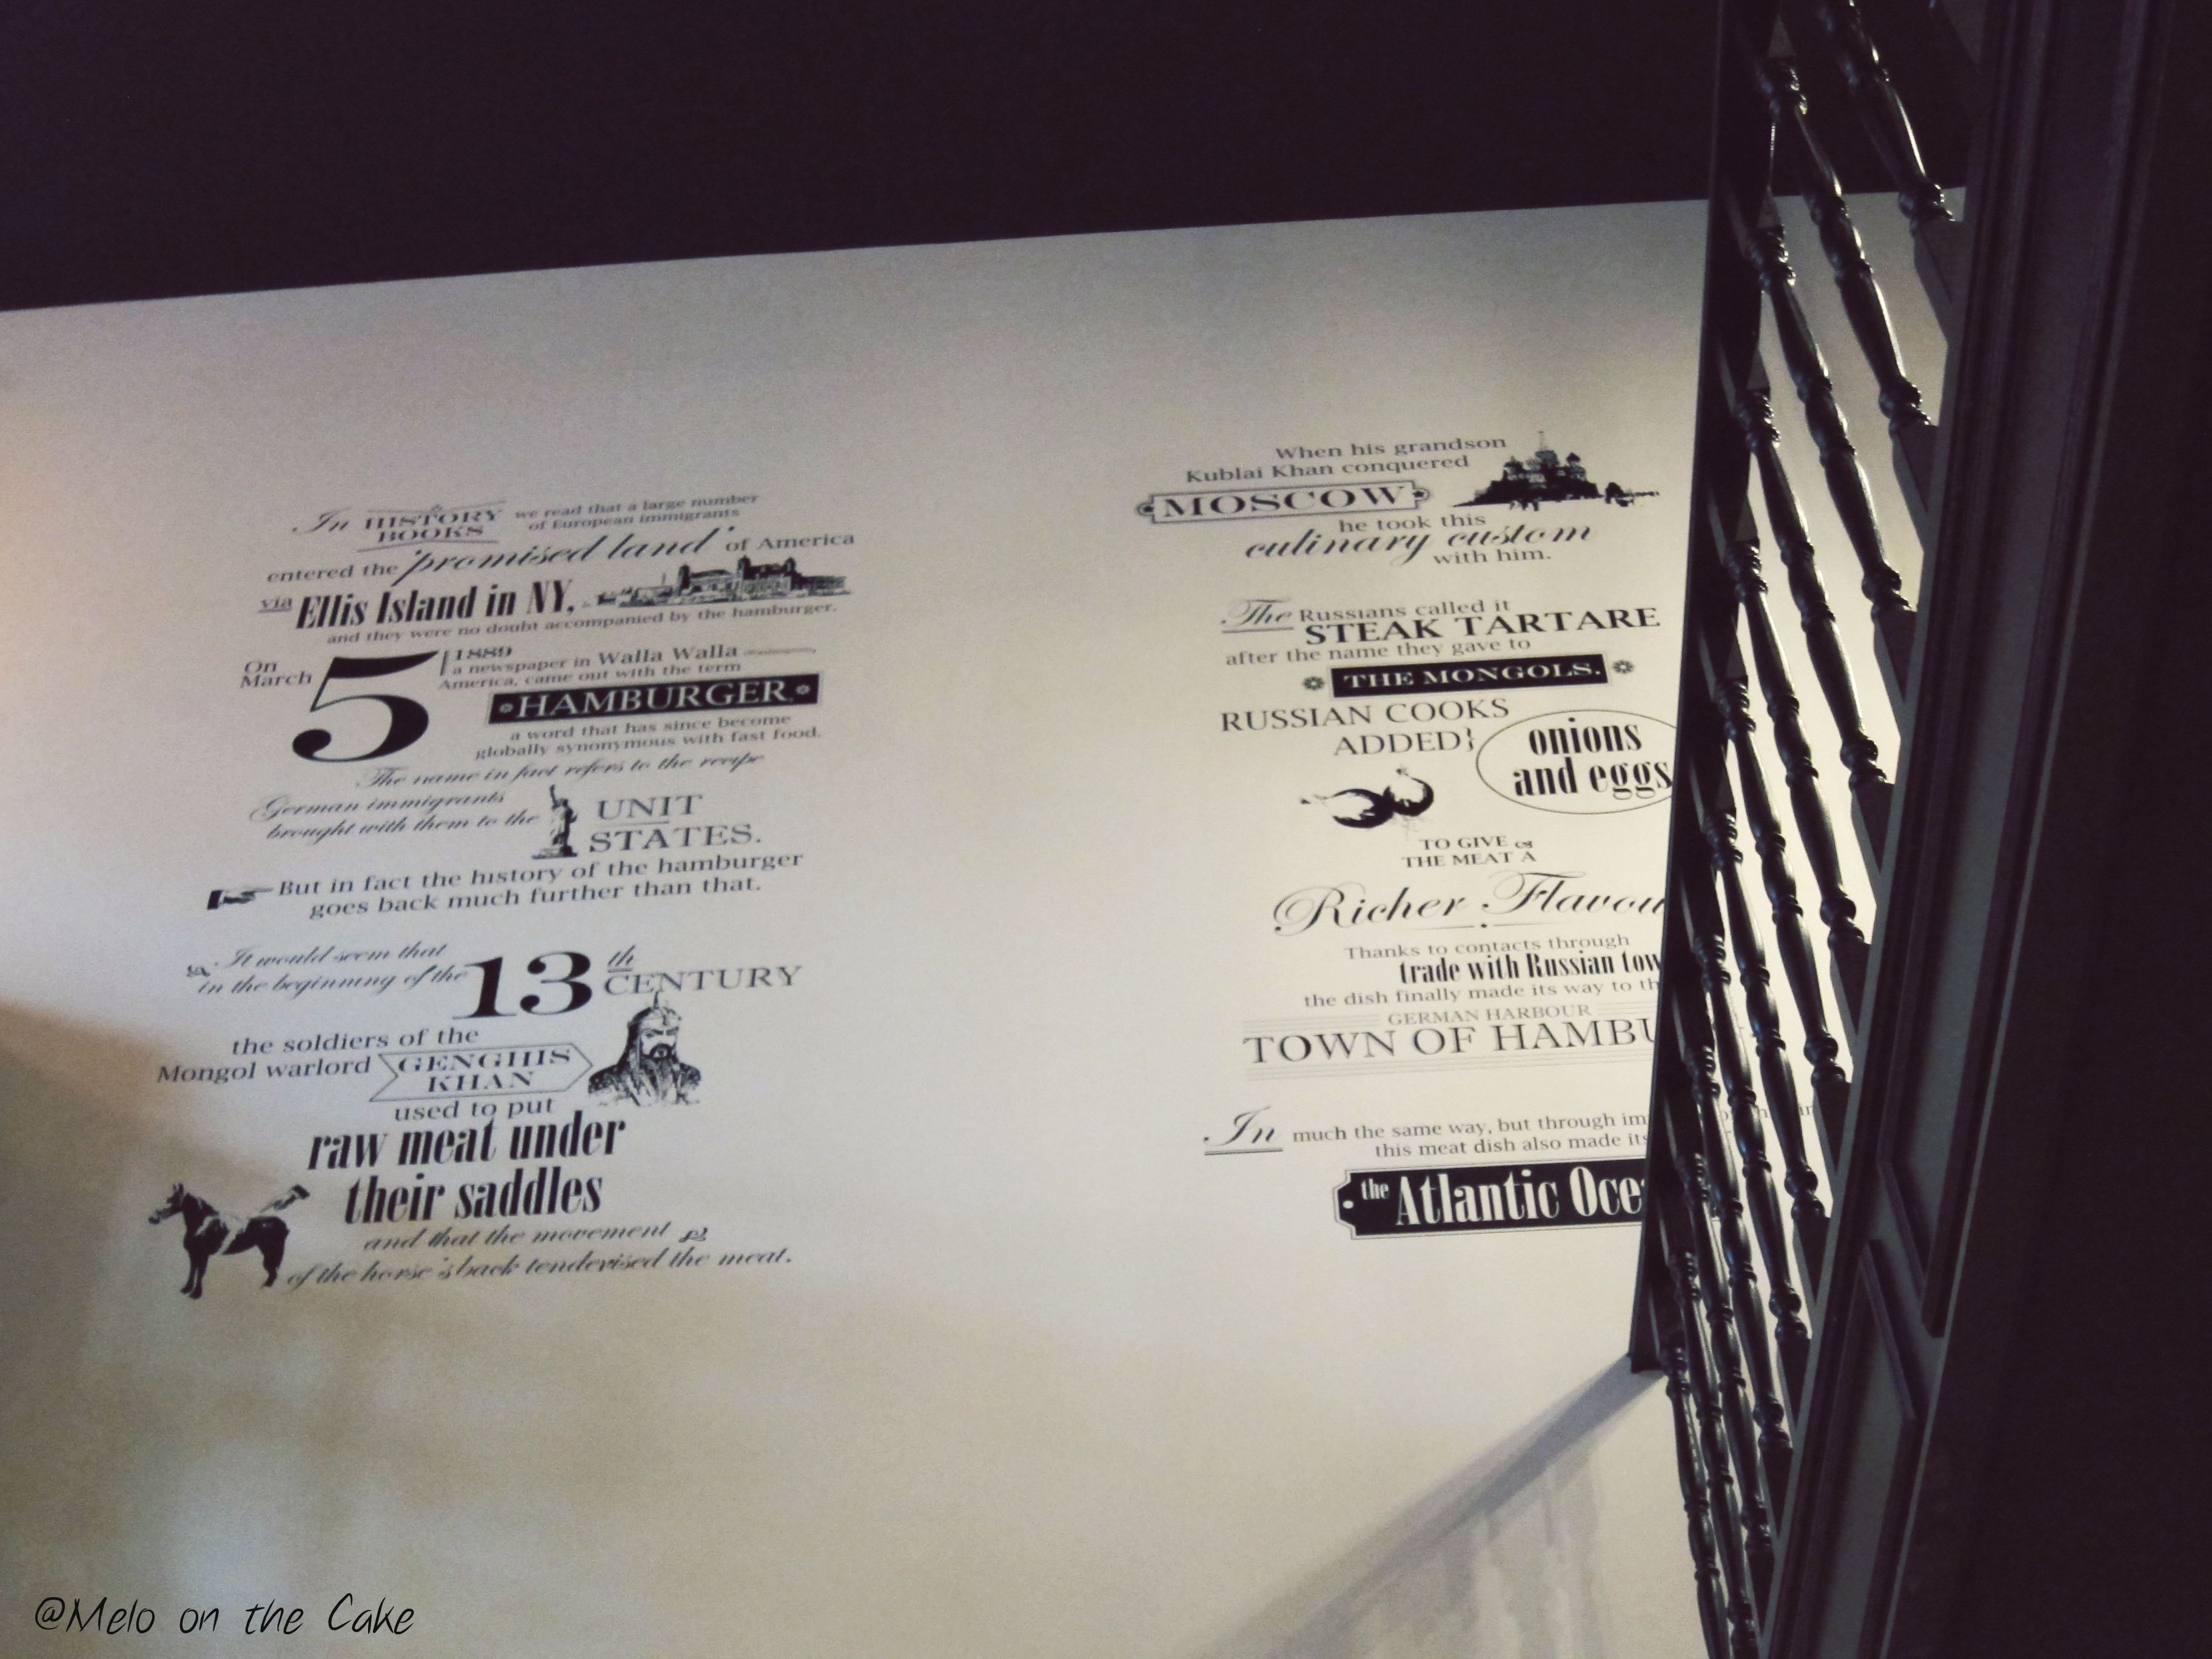 In HISTORY BOOKS we read that a large number
of European immigrants
entered the 'promised land' of America
via Ellis Island in NY,
and they were no doubt accompanied by the hamburger.
On March 5 1889
a newspaper in Walla Walla
America, came out with the term
HAMBURGER
a word that has since become
globally synonymous with fast food.
The name in fact refers to the recipe
German immigrants
brought with them to the
UNIT
STATES.
But in fact the history of the hamburger
goes back much further than that.
It would seem that
in the beginning of the 13th CENTURY
the soldiers of the
Mongol warlord GENGHIS KHAN
used to put
raw meat under
their saddles
and that the movement
of the horse's back tenderised the meat.
When his grandson
Kublai Khan conquered
MOSCOW
he took this
culinary custom
with him.
The Russians called it
STEAK TARTARE
after the name they gave to
THE MONGOLS.
RUSSIAN COOKS
ADDED}
onions
and eggs
TO GIVE
THE MEAT A
Richer Flavou
Thanks to contacts through
trade with Russian tow
the dish finally made its way to th
GERMAN HARBOUR
TOWN OF HAMBU
In much the same way, but through im
this meat dish also made its
the Atlantic Oce
@Melo on the Cake